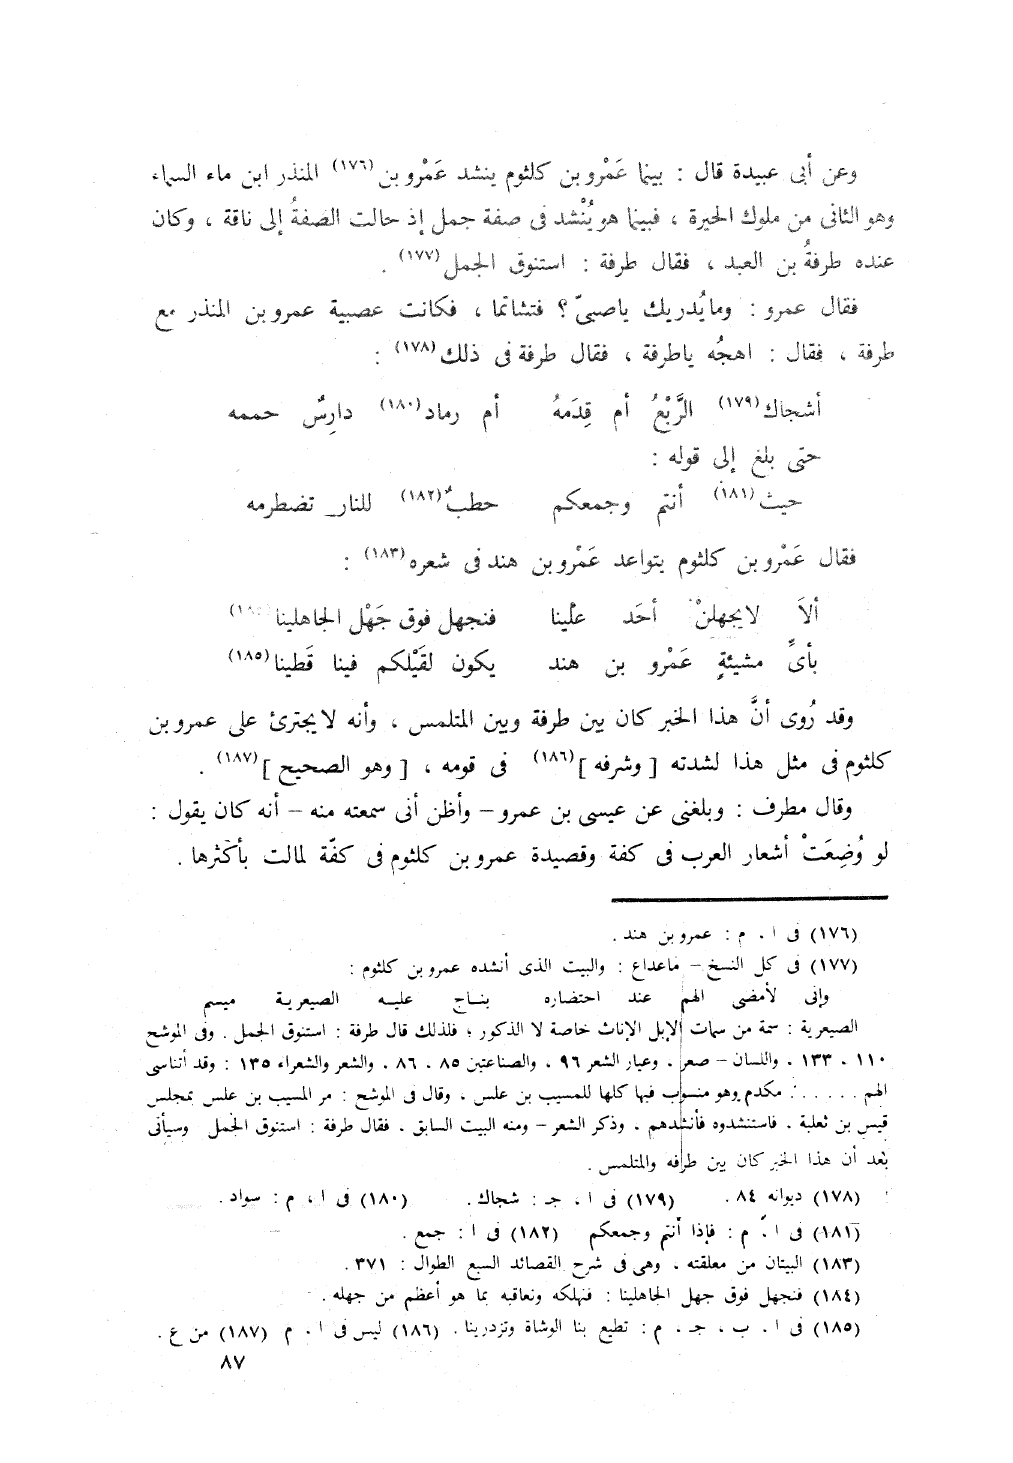 وعن أبى عبيدة قال : بينما عَمْرو بن كلثوم ينشد عَمْرو بن (١٧٦) المنذر ابن ماء السماء
وهو الثانى من ملوك الحيرة ، فبينما هو يُنْشد فى صفة جمل إذ حالت الصفةُ إلى ناقة ، وكان
عنده طرفةُ بن العبد ، فقال طرفة : استنوق الجمل (١٧٧) .
فقال عمرو : وما يُدريك ياصبىّ ؟ فتشاتما ، فكانت عصبية عمرو بن المنذر مع
طرفة ، فقال : اهجُه ياطرفة ، فقال طرفة فى ذلك (١٧٨) :
أشجاك (١٧٩) الرَّبْعُ أم قِدَمهُ أم رماد (١٨٠) دارِسٌ حممه
حتى بلغ إلى قوله :
حيث (١٨١) أنتم وجمعكم حطبٌ (١٨٢) للنار تضطرمه
فقال عَمْرو بن كلثوم يتواعد عَمْرو بن هند فى شعره (١٨٣) :
ألاَ لايجهلنْ أحَد علْينا فنجهل فوق جَهْل الجاهلينا (١٨٤)
بأىِّ مشيئةٍ عَمْرو بن هند يكون لقَيْلكم فينا قَطينا (١٨٥)
وقد رُوى أنَّ هذا الخبر كان بين طرفة وبين المتلمس ، وأنه لايجترئ على عمرو بن
كلثوم فى مثل هذا لشدته [ وشرفه ] (١٨٦) فى قومه ، [ وهو الصحيح ] (١٨٧) .
وقال مطرف : وبلغنى عن عيسى بن عمرو – وأظن أنى سمعته منه – أنه كان يقول :
لو وُضِعَتْ أشعار العرب فى كفة وقصيدة عمرو بن كلثوم فى كفّة لمالت بأكثرها .
(١٧٦) فى ا ، م : عمرو بن هند .
(١٧٧) فى كل النسخ – ماعداع : والبيت الذى أنشده عمرو بن كلثوم :
وإنى لأمضى الهم عند احتضاره بناج عليه الصيعرية ميسم
الصيعرية : سمة من سمات الإبل الإناث خاصة لا الذكور ؛ فلذلك قال طرفة : استنوق الجمل . وفى الموشح
١١٠ ، ١٣٣ ، واللسان – صعر ، وعيار الشعر ٩٦ ، والصناعتين ٨٥ ، ٨٦ ، والشعر والشعراء ١٣٥ : وقد أتناسى
الهم ..... : مكدم وهو منسوب فيها كلها للمسيب بن علس ، وقال فى الموشح : مر المسيب بن علس بمجلس
قيس بن ثعلبة ، فاستنشدوه فأنشدهم ، وذكر الشعر – ومنه البيت السابق ، فقال طرفة : استنوق الجمل وسيأتى
بعد أن هذا الخبر كان بين طرفه والمتلمس .
(١٧٨) ديوانه ٨٤ . (١٧٩) فى ا ، جـ : شجاك . (١٨٠) فى ا ، م : سواد .
(١٨١) فى ا ، م : فإذا أنتم وجمعكم (١٨٢) فى ا : جمع .
(١٨٣) البيتان من معلقته ، وهى فى شرح القصائد السبع الطوال : ٣٧١ .
(١٨٤) فنجهل فوق جهل الجاهلينا : فنهلكه ونعاقبه بما هو أعظم من جهله .
(١٨٥) فى ا ، ب ، جـ ، م : تطيع بنا الوشاة وتزدرينا . (١٨٦) ليس فى ا ، م (١٨٧) من ع .
٨٧